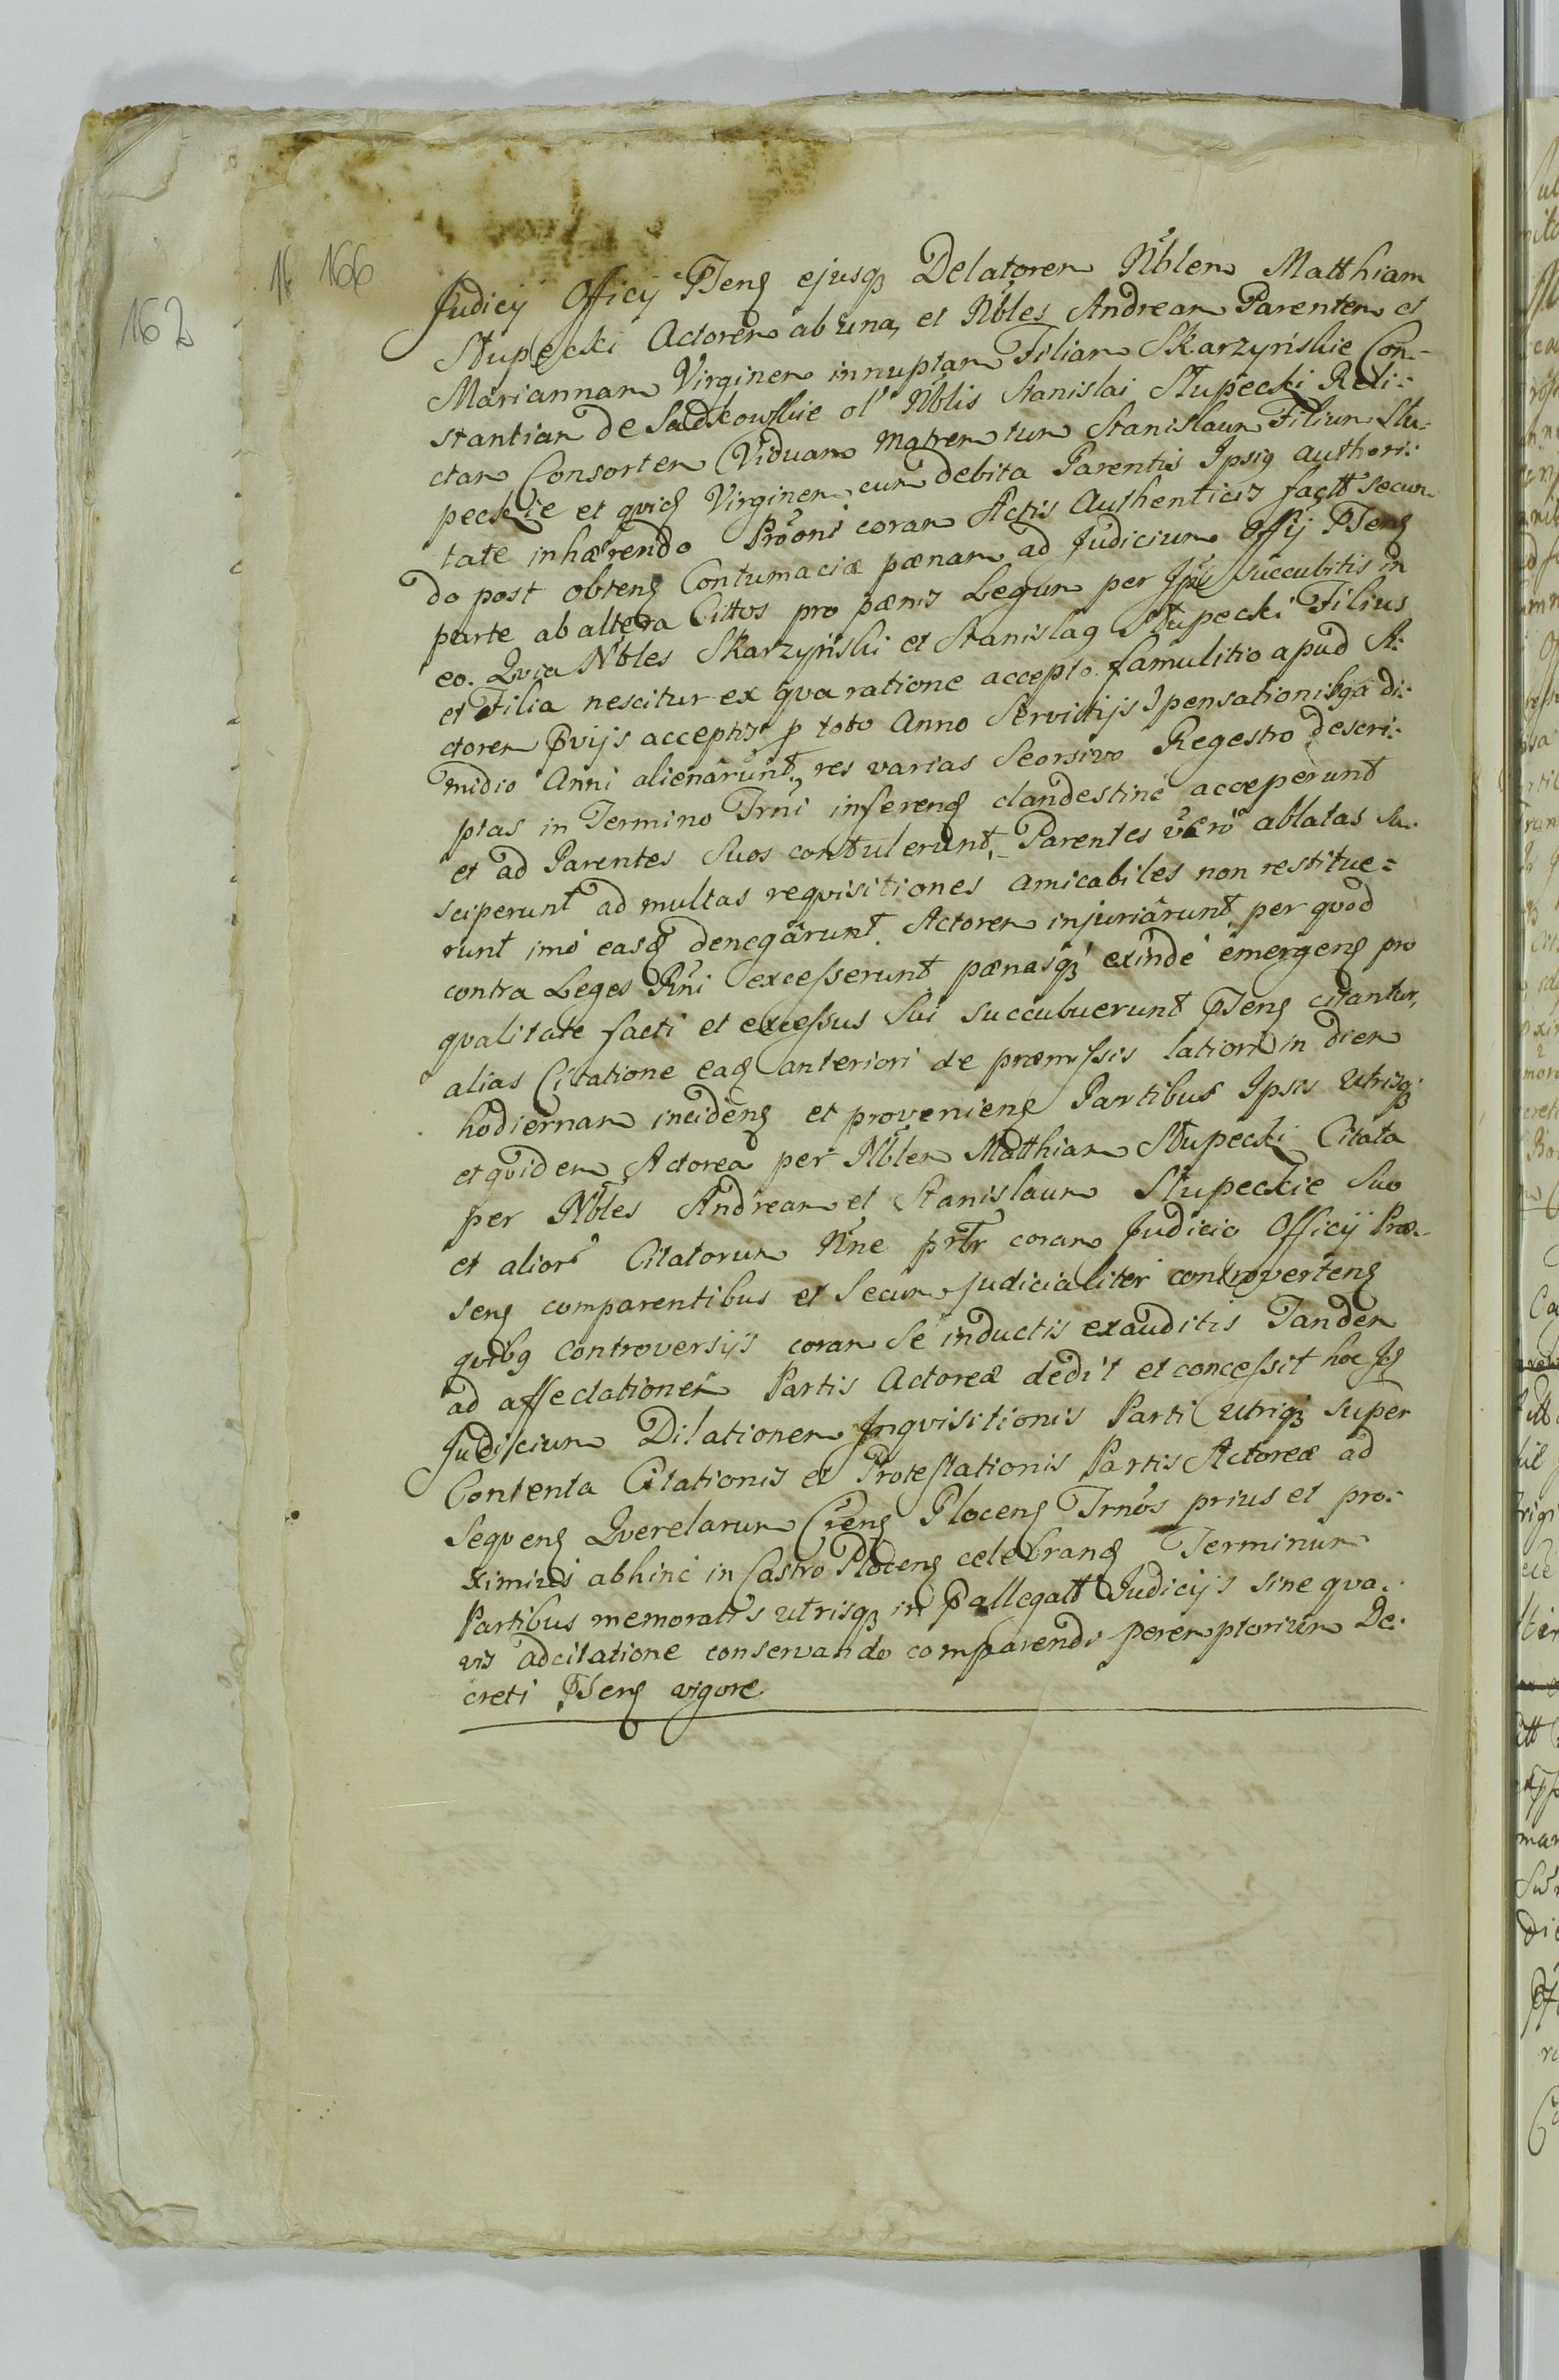 162
16 166
Judicij Officij Pseng ejusq Delatorem Nblem Matthiam
Słupecki Actorem ab una, et Nbles Andream Parentem et
Mariannam Virginem innuptam Filiam Skarzyńskie Con-
stantiam de Sadkowskie ol' Nblis Stanislai Słupecki Reli:
ctam Consortem Viduam Matrem tum Stanislaum Filium Słu:
peckie et qvid Virginem cum debita Parentis Ipsiq authori:
tate inhærendo Prooni coram Actis Authenticis factt secun
do post obteng Contumaciæ pænam ad Judicium Offij Pseng
parte ab altera Cittos pro pænis Legum per Ipsos succubitis in
eo. Qvia Nbles Skarzyński et Stanislaq Słupecki Filius
et Filia nescitur ex qva ratione accepto famulitio apud A:
ctorem Pvijs acceptis p toto Anno Servitijs Ipensationisq a di:
midio Anni alienârunt, res varias Seorsivo Regestro descri:
ptas in Termino Trni infereng clandestiné acceperunt
et ad Parentes Suos contulerunt, Parentes veró ablatas Su:
sciperunt ad multas reqvisitiones amicabiles non restitue:
runt imó easq denegârunt Actorem injuriârunt per qvod
contra Leges Rni excesserunt pænasq exinde emergeng pro
qvalitate facti et excessus Sui succubuerunt Pseng citantur,
alias Citatione eaq anteriori de præmissis lation in diem
hodiernam incideng et provenieng Partibus Ipsis utrisq
et qvidem Actorea per Nblem Matthiam Słupecki Citata
per Nbles Andream et Stanislaum Słupeckie Suo
et alior Citatorum Nne prtr coram Judicio Officij Præ-
seng comparentibus et Secum judicialiter controverteng
qvibq controversijs coram Se inductis exauditis Tandem
ad affectationem Partis Actoreæ dedit et concessit hoc Jq
Judicium Dilationem Inqvisitionis Parti utriq super
Contenta Citationis et Protestationis Partis Actoreæ ad
Seqveng Qverelarum Creng Ploceng Trnos prius et pro:
ximius abhinc in Castro Ploceng celebrang Terminum
Partibus memoratis utrisq in Pallegatt Judicijs sine qva:
vis adcitatione conservando comparendi peremptorium De:
creti Pseng vigore